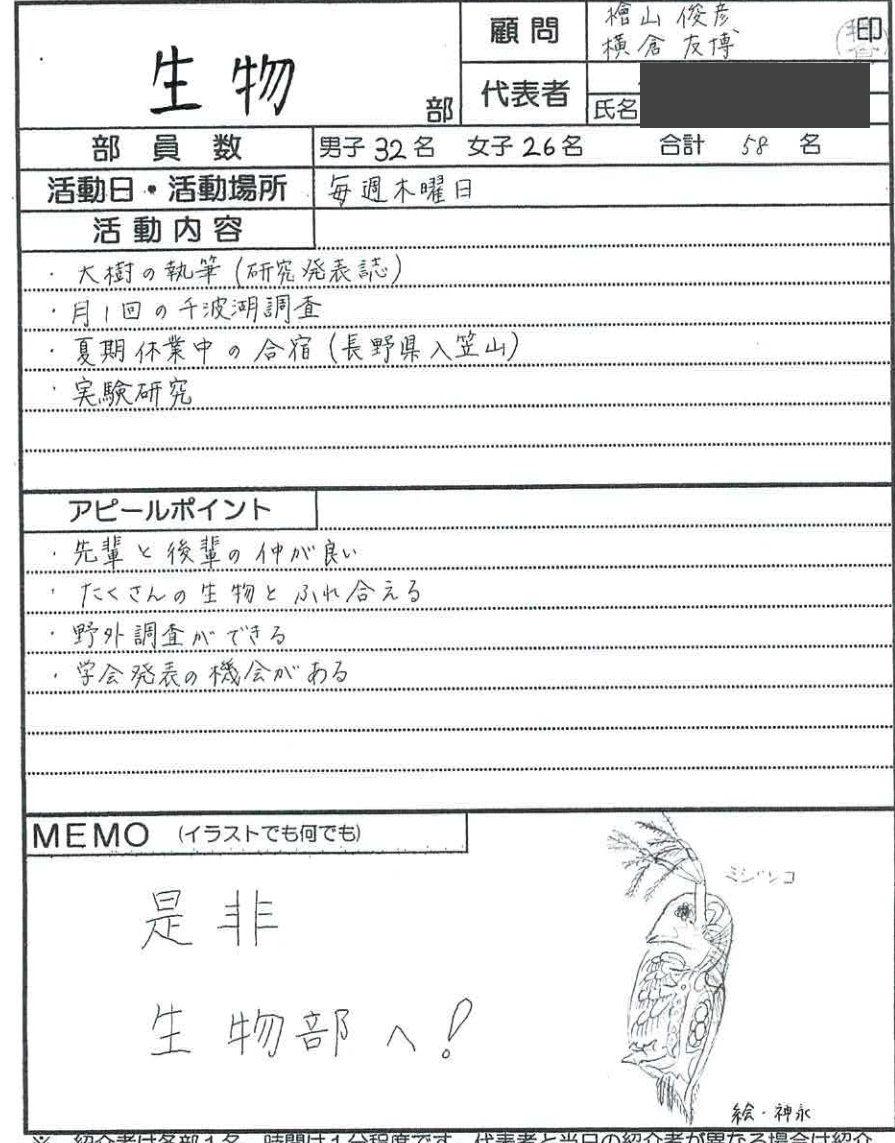 生物部
顧問 檜山 俊彦 印
横倉 友博
代表者 氏名
部員数 男子 32 名 女子 26 名 合計 58 名
活動日・活動場所 毎週木曜日
活動内容
・大樹の執筆(研究発表誌)
・月1回の千波湖調査
・夏期休業中の合宿(長野県入笠山)
・実験研究
アピールポイント
・先輩と後輩の仲が良い
・たくさんの生物とふれ合える
・野外調査ができる
・学会発表の機会がある
MEMO (イラストでも何でも)
ミジンコ
是非
生物部へ!
絵・神永
※ 紹介者は各部1名、時間は1分程度です。代表者と当日の紹介者が異なる場合は紹介